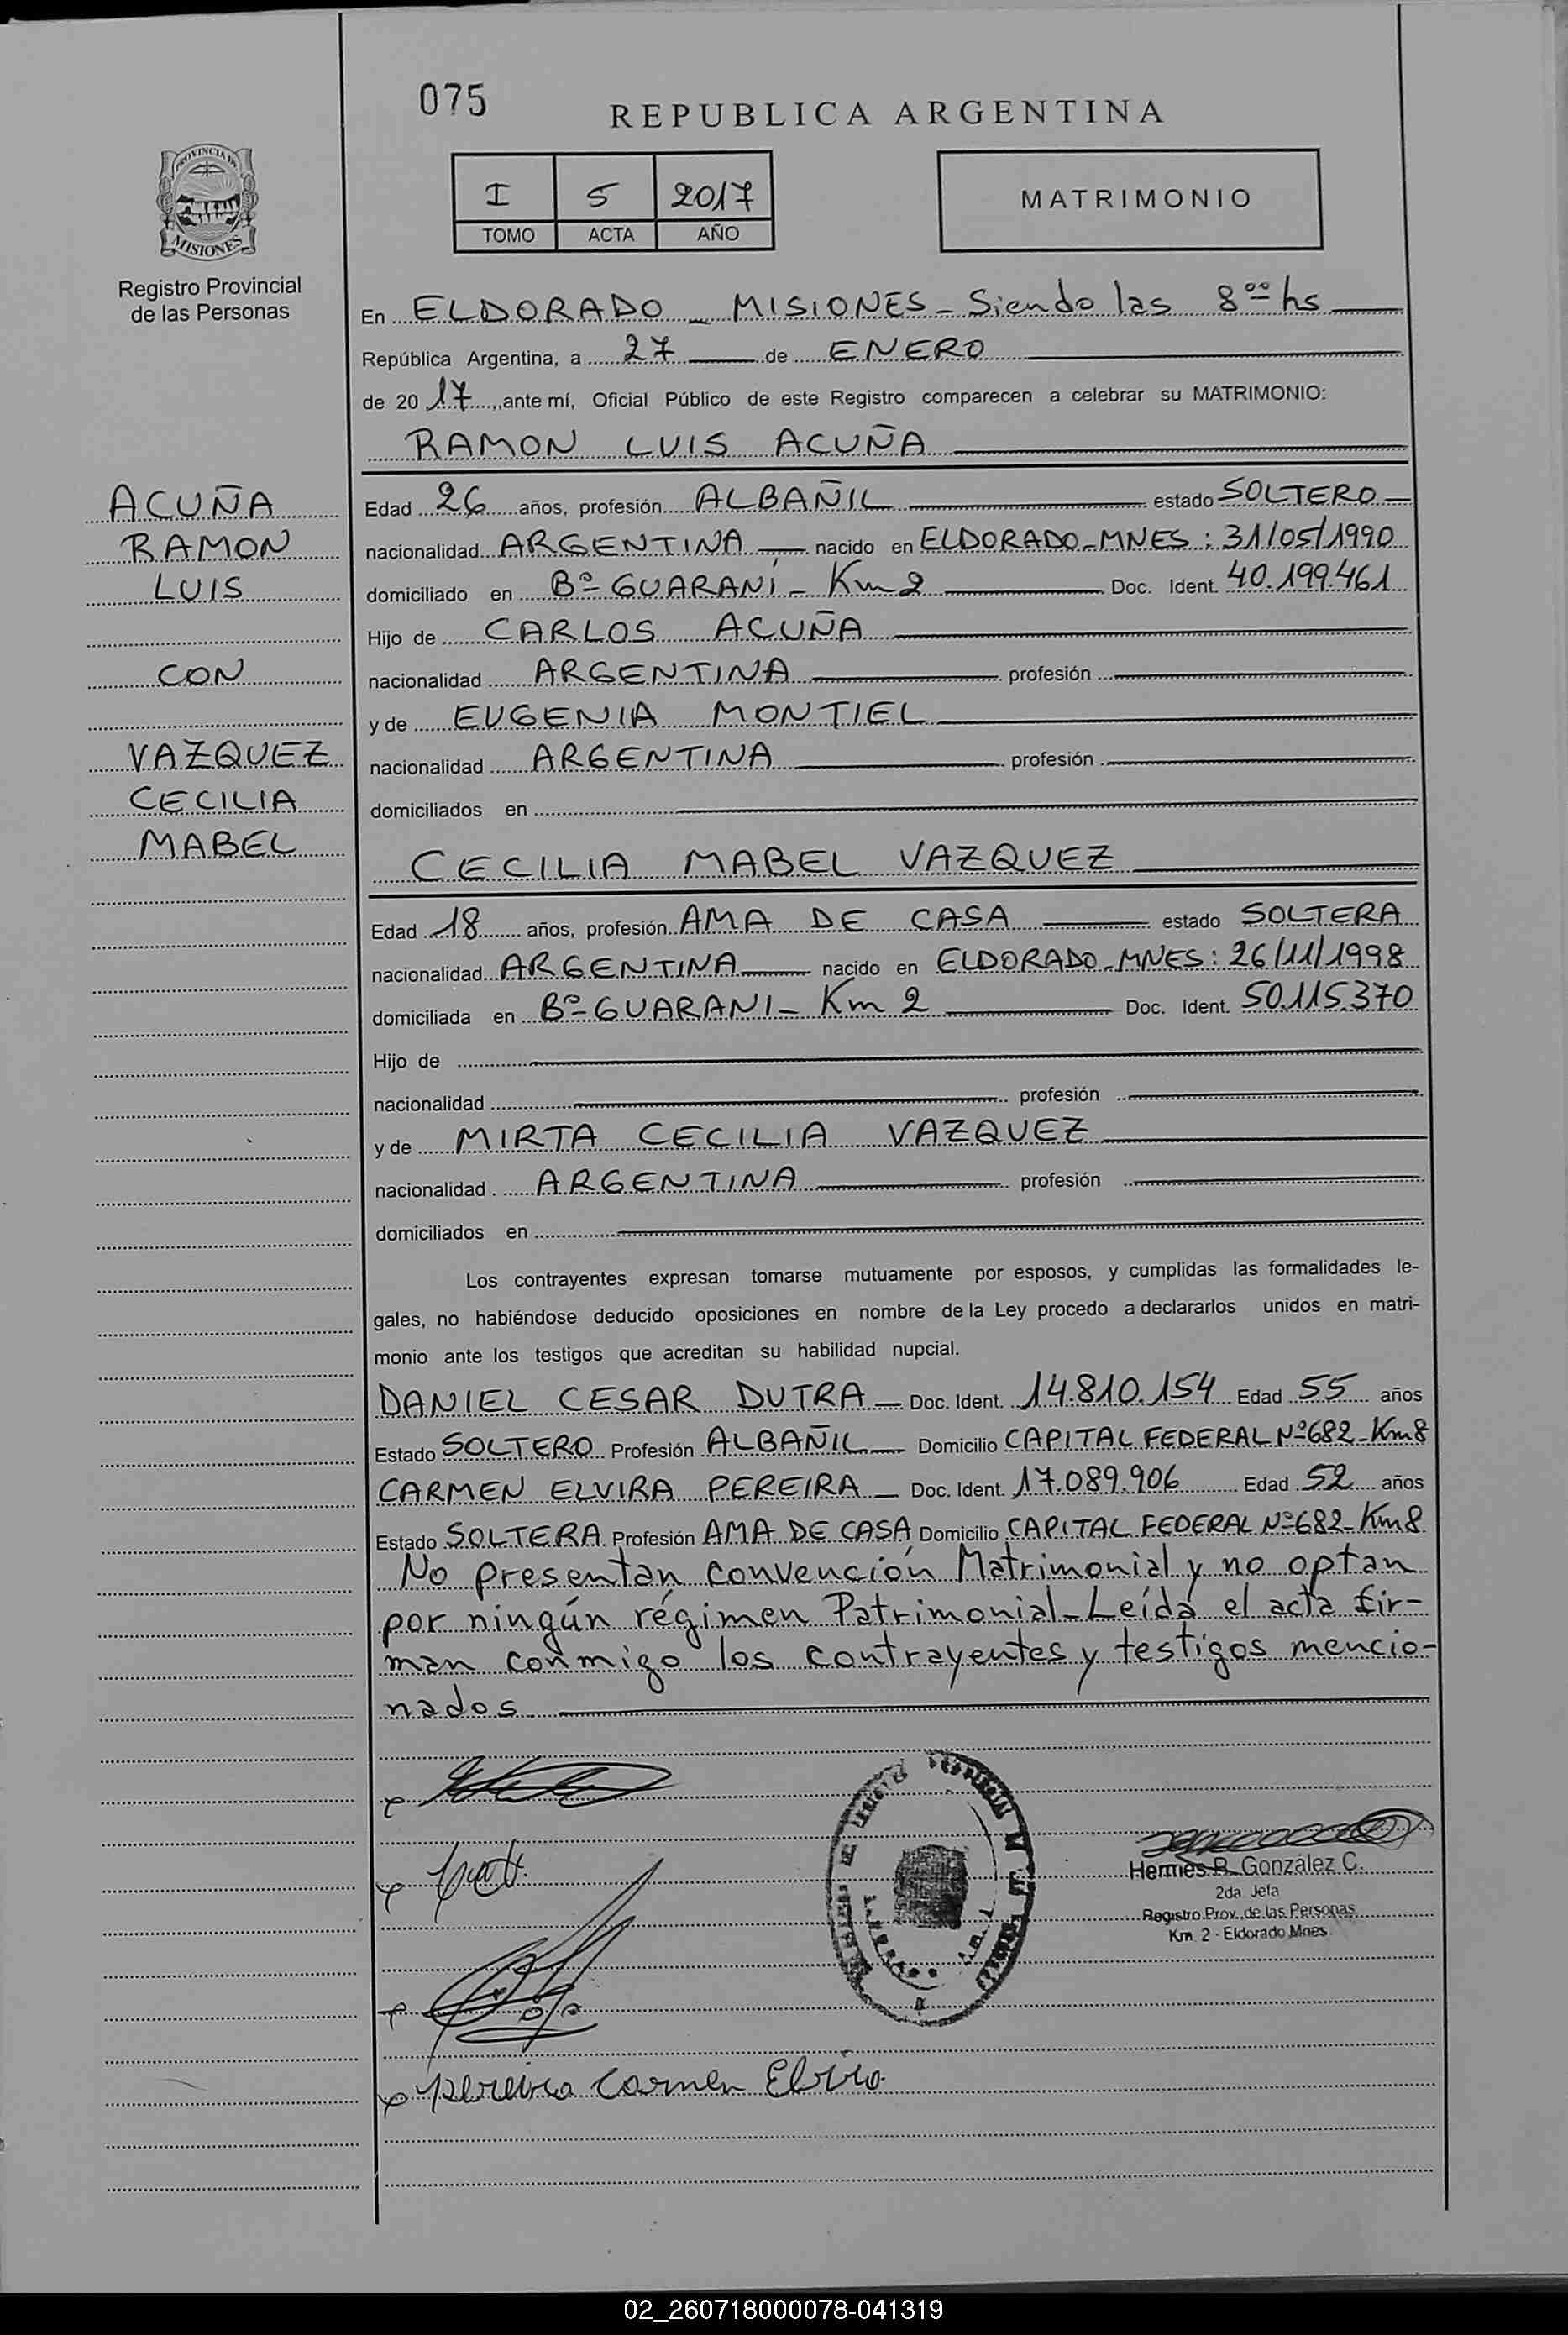 075
REPUBLICA ARGENTINA
I 5 2017
TOMO ACTA AÑO
MATRIMONIO
PROVINCIA DE
MISIONES
Registro Provincial
de las Personas
En ELDORADO - MISIONES - Siendo las 8 00 hs
República Argentina, a 27 de ENERO
de 20 17, ante mí, Oficial Público de este Registro comparecen a celebrar su MATRIMONIO:
RAMON LUIS ACUÑA
ACUÑA
RAMON
LUIS
CON
VAZQUEZ
CECILIA
MABEL
Edad 26 años, profesión ALBAÑIL estado SOLTERO
nacionalidad ARGENTINA nacido en ELDORADO-MNES: 31/05/1990
domiciliado en Bº GUARANÍ - Km 2 Doc. Ident. 40.199.461
Hijo de CARLOS ACUÑA
nacionalidad ARGENTINA profesión
y de EUGENIA MONTIEL
nacionalidad ARGENTINA profesión
domiciliados en
CECILIA MABEL VAZQUEZ
Edad 18 años, profesión AMA DE CASA estado SOLTERA
nacionalidad ARGENTINA nacido en ELDORADO-MNES: 26/11/1998
domiciliada en Bº GUARANI - Km 2 Doc. Ident. 50.115.370
Hijo de
nacionalidad profesión
y de MIRTA CECILIA VAZQUEZ
nacionalidad ARGENTINA profesión
domiciliados en
Los contrayentes expresan tomarse mutuamente por esposos, y cumplidas las formalidades le-
gales, no habiéndose deducido oposiciones en nombre de la Ley procedo a declararlos unidos en matri-
monio ante los testigos que acreditan su habilidad nupcial.
DANIEL CESAR DUTRA - Doc. Ident. 14.810.154 Edad 55 años
Estado SOLTERO Profesión ALBAÑIL Domicilio CAPITAL FEDERAL Nº682-Km8
CARMEN ELVIRA PEREIRA - Doc. Ident. 17.089.906 Edad 52 años
Estado SOLTERA Profesión AMA DE CASA Domicilio CAPITAL FEDERAL Nº682-Km8
No presentan convención Matrimonial y no optan
por ningún régimen Patrimonial - Leída el acta fir-
man conmigo los contrayentes y testigos mencio-
nados
Hermes R. González C.
2da Jefa
Registro Prov. de las Personas
Km. 2 - Eldorado Mnes.
Pereira Carmen Elvira
02_260718000078-041319